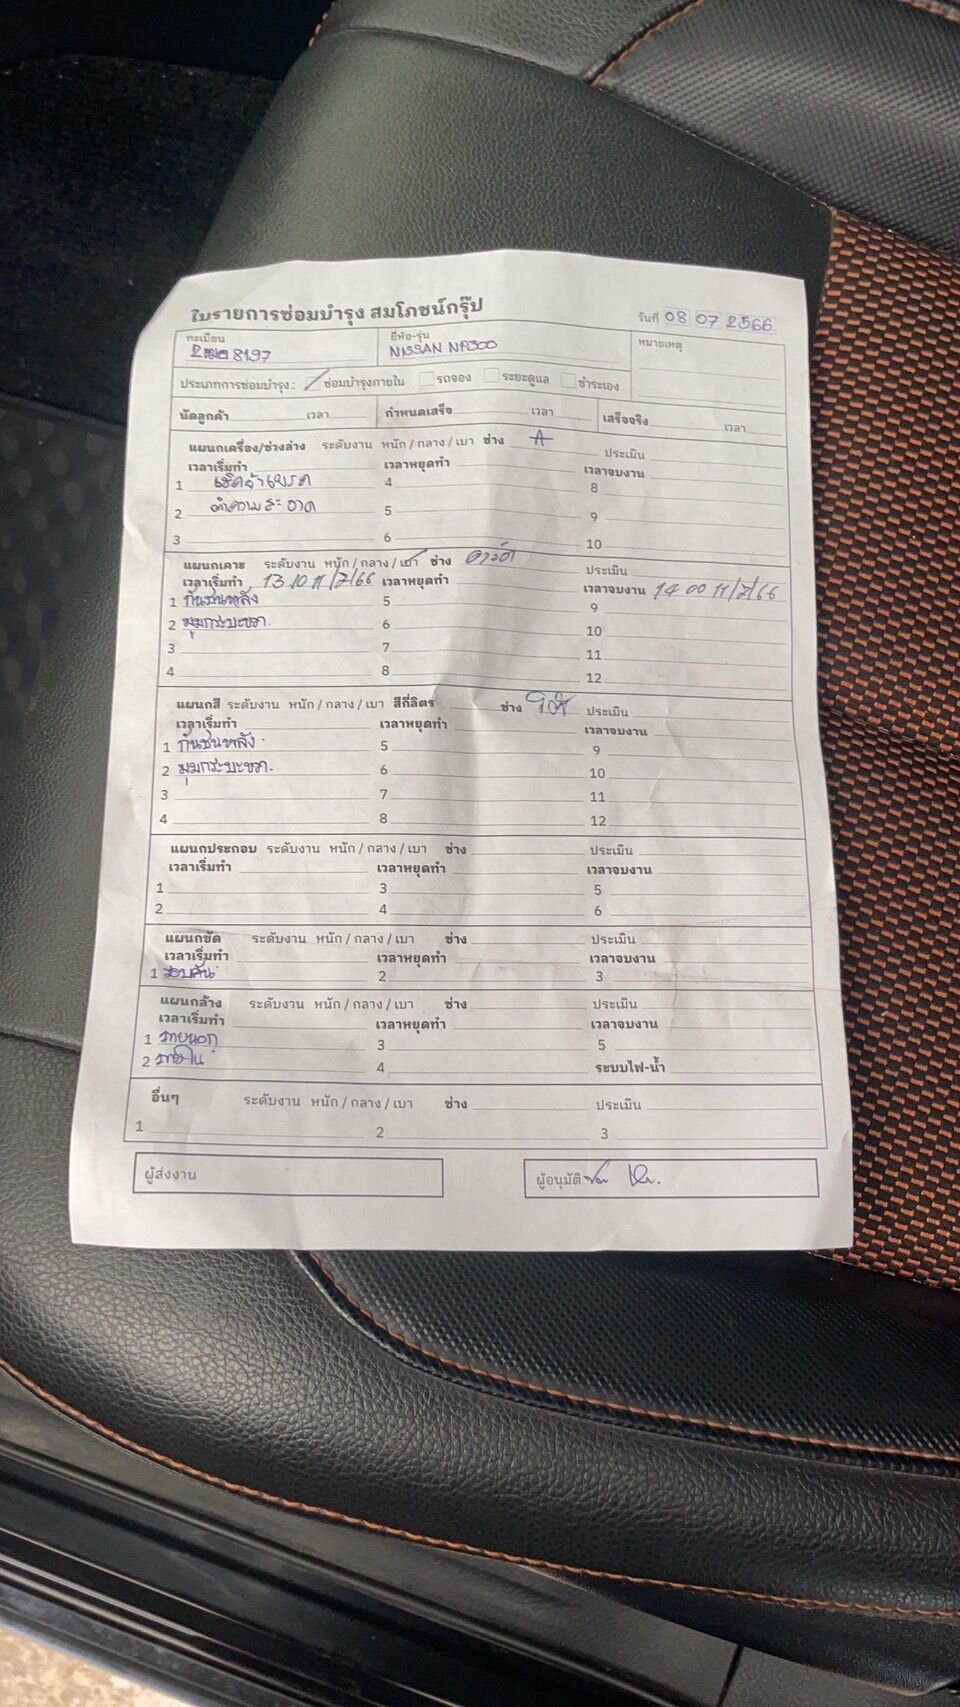 ใบรายการซ่อมบำรุง สมโภชน์กรุ๊ป
วันที่ 08 07 2566
ทะเบียน 8197
ยี่ห้อ-รุ่น NISSAN NP300
หมายเหตุ
ประเภทการซ่อมบำรุง: ซ่อมบำรุงภายใน รถจอง ระยะดูแล ชำระเอง
นัดลูกค้า เวลา กำหนดเสร็จ เวลา เสร็จจริง เวลา
แผนกเครื่อง/ช่วงล่าง ระดับงาน หนัก / กลาง / เบา ช่าง A ประเมิน
เวลาเริ่มทำ เวลาหยุดทำ เวลาจบงาน
1 เช็คผ้าเบรค 4 8
2 ทำความสะอาด 5 9
3 6 10
แผนกเคาะ ระดับงาน หนัก / กลาง / เบา ช่าง ประเมิน
เวลาเริ่มทำ 13 10 11/7/66 เวลาหยุดทำ เวลาจบงาน 14 00 11/7/66
1 กันชนหลัง 5 9
2 มุมกระบะขวา. 6 10
3 7 11
4 8 12
แผนกสี ระดับงาน หนัก / กลาง / เบา สีกี่ลิตร ช่าง ประเมิน
เวลาเริ่มทำ เวลาหยุดทำ เวลาจบงาน
1 กันชนหลัง. 5 9
2 มุมกระบะขวา. 6 10
3 7 11
4 8 12
แผนกประกอบ ระดับงาน หนัก / กลาง / เบา ช่าง ประเมิน
เวลาเริ่มทำ เวลาหยุดทำ เวลาจบงาน
1 3 5
2 4 6
แผนกขัด ระดับงาน หนัก / กลาง / เบา ช่าง ประเมิน
เวลาเริ่มทำ เวลาหยุดทำ เวลาจบงาน
1 รอบคัน 2 3
แผนกล้าง ระดับงาน หนัก / กลาง / เบา ช่าง ประเมิน
เวลาเริ่มทำ เวลาหยุดทำ เวลาจบงาน
1 ภายนอก 3 5
2 ภายใน 4 ระบบไฟ-น้ำ
อื่นๆ ระดับงาน หนัก / กลาง / เบา ช่าง ประเมิน
1 2 3
ผู้ส่งงาน ผู้อนุมัติ